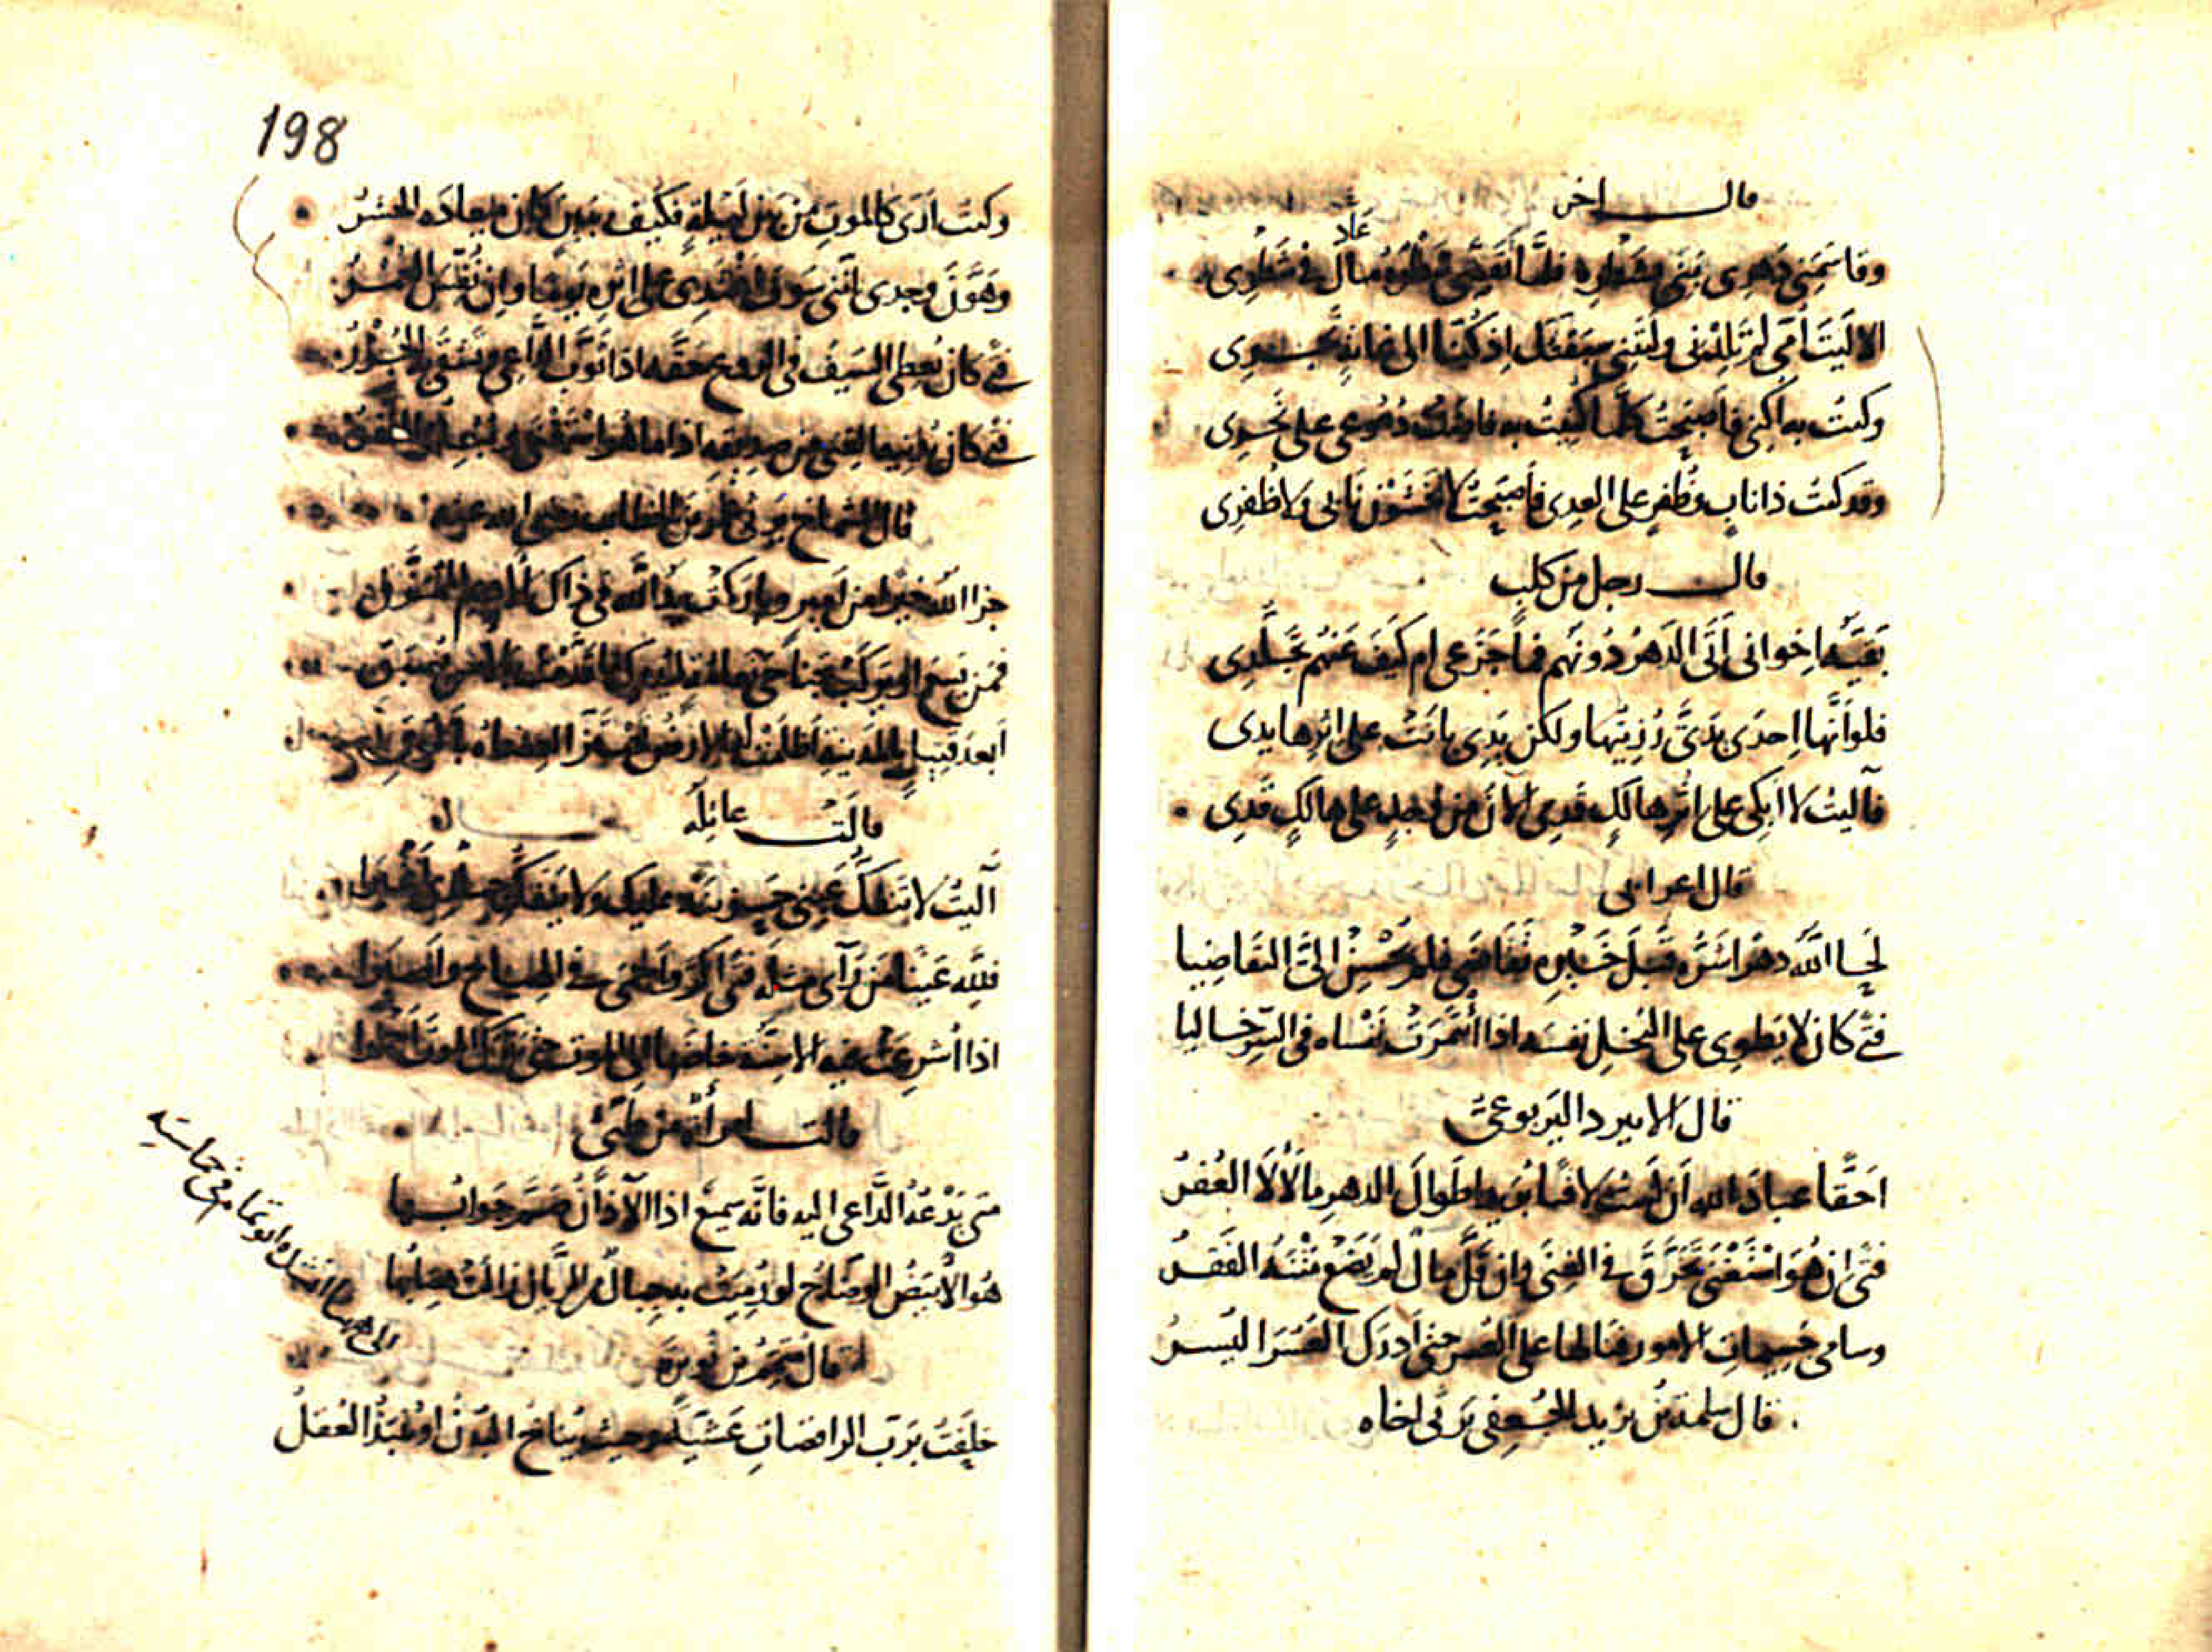 قال اخر
وقاسَمَني دَهري بَنيَّ بشَطرِه فلمَّا تَقَضَّى شَطرُه مال في شَطري
عاد
الا لَيتَ اُمّي لم تَلِدْني ولَيتَني سبقتك اذ كُنّا الى غايةٍ نجري
وكنتُ به اُكنى فأصبَحتُ كلَّما كُنيتُ به فاضَتْ دُمُوعي على نَحري
وقد كنتُ ذا نابٍ وظُفرٍ على العِدى فأصبَحتُ لا يَخشَوْنَ نابي ولا ظُفري
قال رجل من كلب
بَقيَّة اِخواني اَتَى الدَهرُ دُونَهم فما جَزَعي ام كَيفَ عَنهُم تجَلُّدي
فلو اَنَّها اِحدَى يَدَيَّ رُزِيتُها ولكن يَدِي بانَتْ على اِثرِها يدي
فآليتُ لا اَبكي على اِثرِ هالكٍ قَدِي الآنَ من وَجدٍ على هالكٍ قَدِي
قال اعرابي
لَحا اللَّهُ دهرًا شَرُّه قَبلَ خَيرِه تقاضى فلم يُحْسِنْ الىَّ التقاضِيا
فتًى كان لا يَطوِي على البُخلِ نفسَه اذا ائتمَرَتْ نَفساه في السّرِ خاليا
قال الابيرد اليَربوعىّ
اَحَقًّا عبادَ الله اَن لَستُ لاقيًا بُريدا طَوالَ الدهرِ ما لألأَ العُفرُ
فتًى اِن هُوَ اسْتَغْنَى تَخَرَّقَ في الغِنَى وان قَلَّ مالٌ لم يَضَعْ مَتْنَهُ الفَقرُ
وسامى جَسِيماتِ الامور فنالها على العُسرِ حتى اَدرَكَ العُسَرَ اليُسرُ
قال سلمة بنُ يزيد الجُعفي يَرثي اخاه
198
وكنتُ اَرَى كالموتِ من بَينِ لَيلةٍ فكَيفَ بِبَينٍ كان ميعادَه الحَشرُ
وهَوَّنَ وجدي اَنَّني سَوفَ اَغتَدِي على اِثرِه يَومًا وان نُفِّسَ العُمرُ
فتًى كان يُعطي السَيفَ في الرَوعِ حَقَّه اذا ثَوَّبَ الدَّاعي وتَشقَى به الجُزُرُ
فتًى كان يُدنِيهِ الغِنَى من صديقِه اذا ما هُوَ استَغنَى ويُبعِدُه الفَقرُ
قال الشماخ يَرثي عمر بن الخطاب رضى الله عنه
جزا اللّهُ خيرًا من اَميرٍ وبارَكَتْ يدُ اللّه في ذاكَ الاَديمِ المُمَزَّقِ
فمن يَسعَ او يَركَبْ جَناحَي نعامة ليُدرِكَ ما قَدَّمتَ بالامسِ يُسبَقِ
اَبعدَ قتيلٍ بالمدينةِ اَظلَمَتْ له الارضُ تَهتَزُّ العِضاهُ بأَسوُقِ
قالَت عاتِكة
آليتُ لا تنفكُّ عَيني حَزِينةً عليك ولا يَنفكُّ جِلدي اَغبَرا
فللّه عَينًا مَن رَآى مثلَه فتًى اَكَرَّ واَحمَى في الهِياجِ واَصبَرا
اذا اُشرِعَتْ فيه الاسِنّة خاضَها الى الموت حتى يَترُكَ الموتَ اَحمَرا
قالت امرأة من طيّئ
متى يَدْعُهُ الدَّاعي اليه فانّه سميعٌ اذا الآذانُ صَمَّ جَوابُها
هُوَ الاَبيَضُ الوضّاحُ لو رُمِيَتْ به جِبالٌ من الرَّيّانِ زالَتْ هِضابُها
قال مُتَمِّمُ بن نُوَيرة
حلَفتُ برَبّ الراقصاتِ عَشيّةً وحيثُ يُناخُ البُدنُ او تُنبَذُ العُقلُ
انشده ابو تمام في حماسته